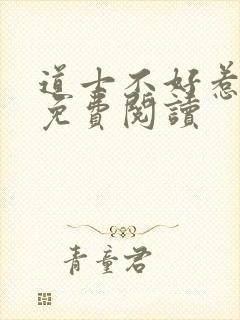 道士不好惹
免費閱讀
青童君